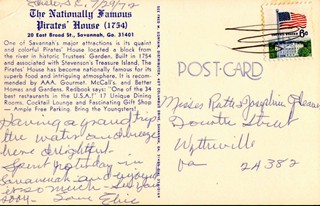 The Nationally Famous
Pirates' House (1754)
20 East Broad St., Savannah, Ga. 31401
One of Savannah's major attractions is its quaint
and colorful Pirates' House located a block from
the river in historic Trustees' Garden. Built in 1754
and associated with Stevenson's Treasure Island. The
Pirates' House has become nationally famous for its
superb food and intriguing atmosphere. It is recom-
mended by AAA, Gourmet, McCall's, and Better
Homes and Gardens. Redbook says: "One of the 34
best restaurants in the U.S.A." 17 Unique Dining
Rooms, Cocktail Lounge and Fascinating Gift Shop
— Ample Free Parking. Bring the Youngsters!
Having a grand trip
the water and breeze
here delightful.
Spent yesterday in
Savannah and enjoyed
it so much - See you
soon - Love
POST CARD
6c
Misses Ruth &
Street
Wytheville
Va 24382